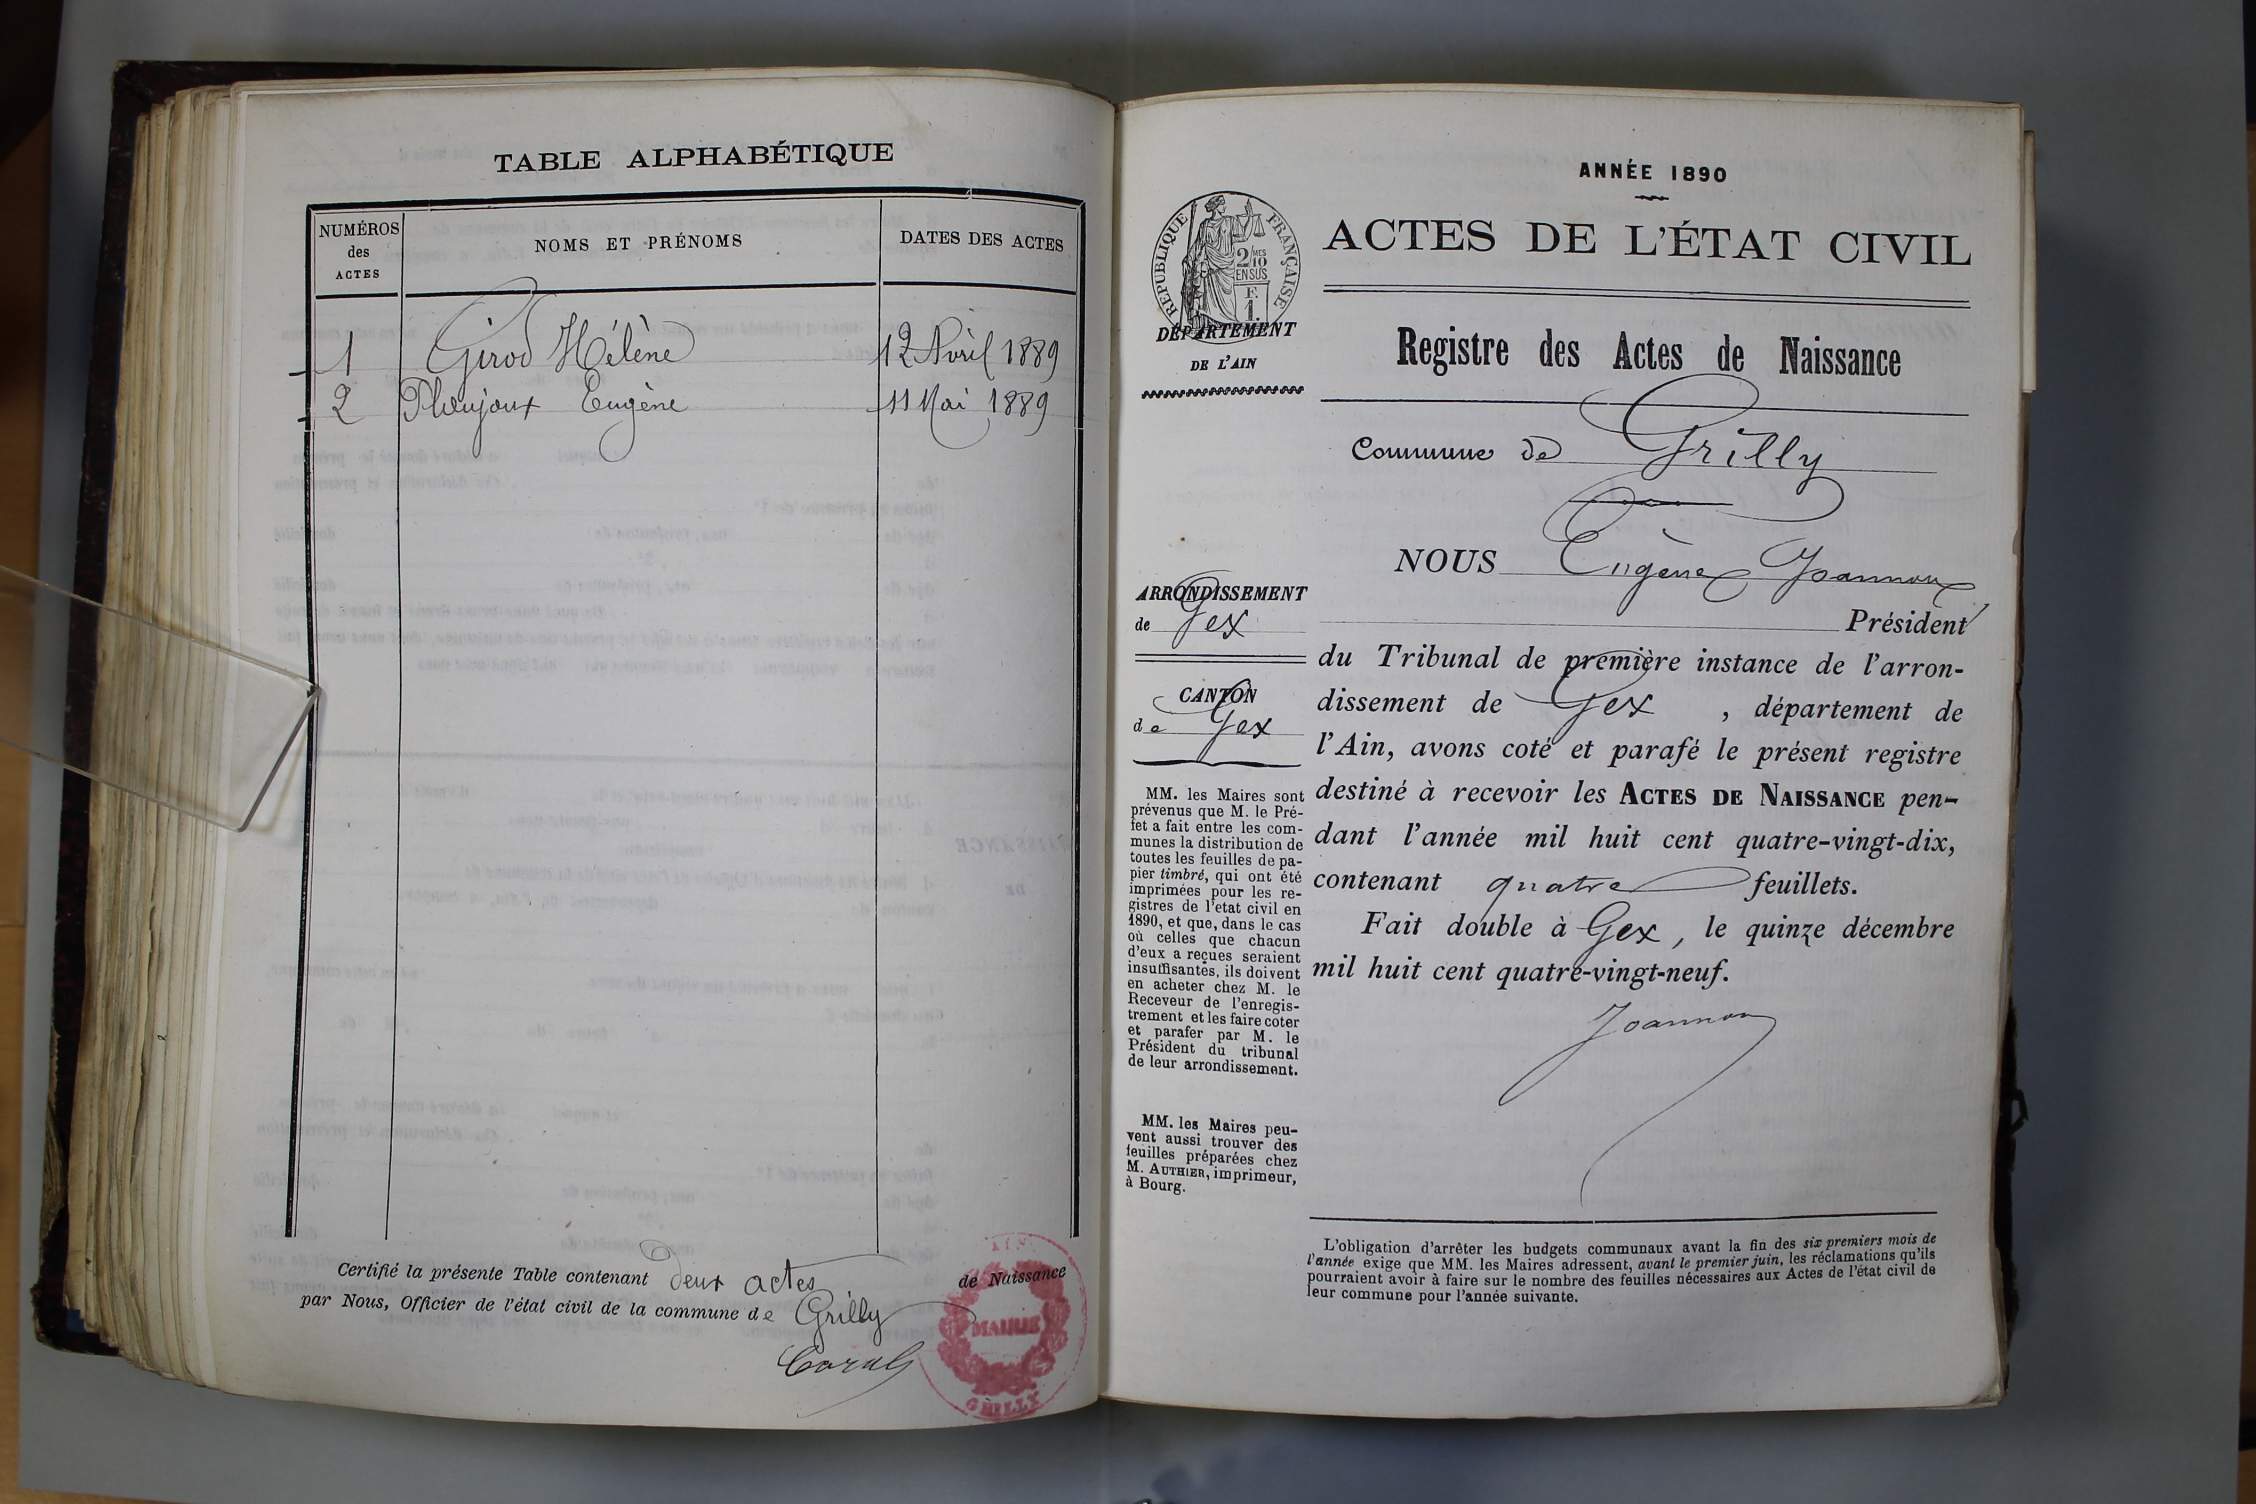 TABLE ALPHABÉTIQUE
NUMÉROS
des
ACTES
NOMS ET PRÉNOMS
DATES DES ACTES
1 Girod Hélène 12 Avril 1889
2 Eugène 11 Mai 1889
Certifié la présente Table contenant deux actes de Naissance
par Nous, Officier de l'état civil de la commune de Grilly
MAIRIE
GRILLY
ANNÉE 1890
RÉPUBLIQUE FRANÇAISE
2/10 MES
EN SUS
F.
1.
DÉPARTEMENT
DE L'AIN
ACTES DE L'ÉTAT CIVIL
Registre des Actes de Naissance
Commune de Grilly
ARRONDISSEMENT
de Gex
CANTON
de Gex
MM. les Maires sont
prévenus que M. le Pré-
fet a fait entre les com-
munes la distribution de
toutes les feuilles de pa-
pier timbré, qui ont été
imprimées pour les re-
gistres de l'etat civil en
1890, et que, dans le cas
où celles que chacun
d'eux a reçues seraient
insuffisantes, ils doivent
en acheter chez M. le
Receveur de l'enregis-
trement et les faire coter
et parafer par M. le
Président du tribunal
de leur arrondissement.
MM. les Maires peu-
vent aussi trouver des
feuilles préparées chez
M. AUTHIER, imprimeur,
à Bourg.
NOUS Eugène Joannon
Président
du Tribunal de première instance de l'arron-
dissement de Gex , département de
l'Ain, avons coté et parafé le présent registre
destiné à recevoir les ACTES DE NAISSANCE pen-
dant l'année mil huit cent quatre-vingt-dix,
contenant quatre feuillets.
Fait double à Gex, le quinze décembre
mil huit cent quatre-vingt-neuf.
Joannon
L'obligation d'arrêter les budgets communaux avant la fin des six premiers mois de
l'année exige que MM. les Maires adressent, avant le premier juin, les réclamations qu'ils
pourraient avoir à faire sur le nombre des feuilles nécessaires aux Actes de l'état civil de
leur commune pour l'année suivante.